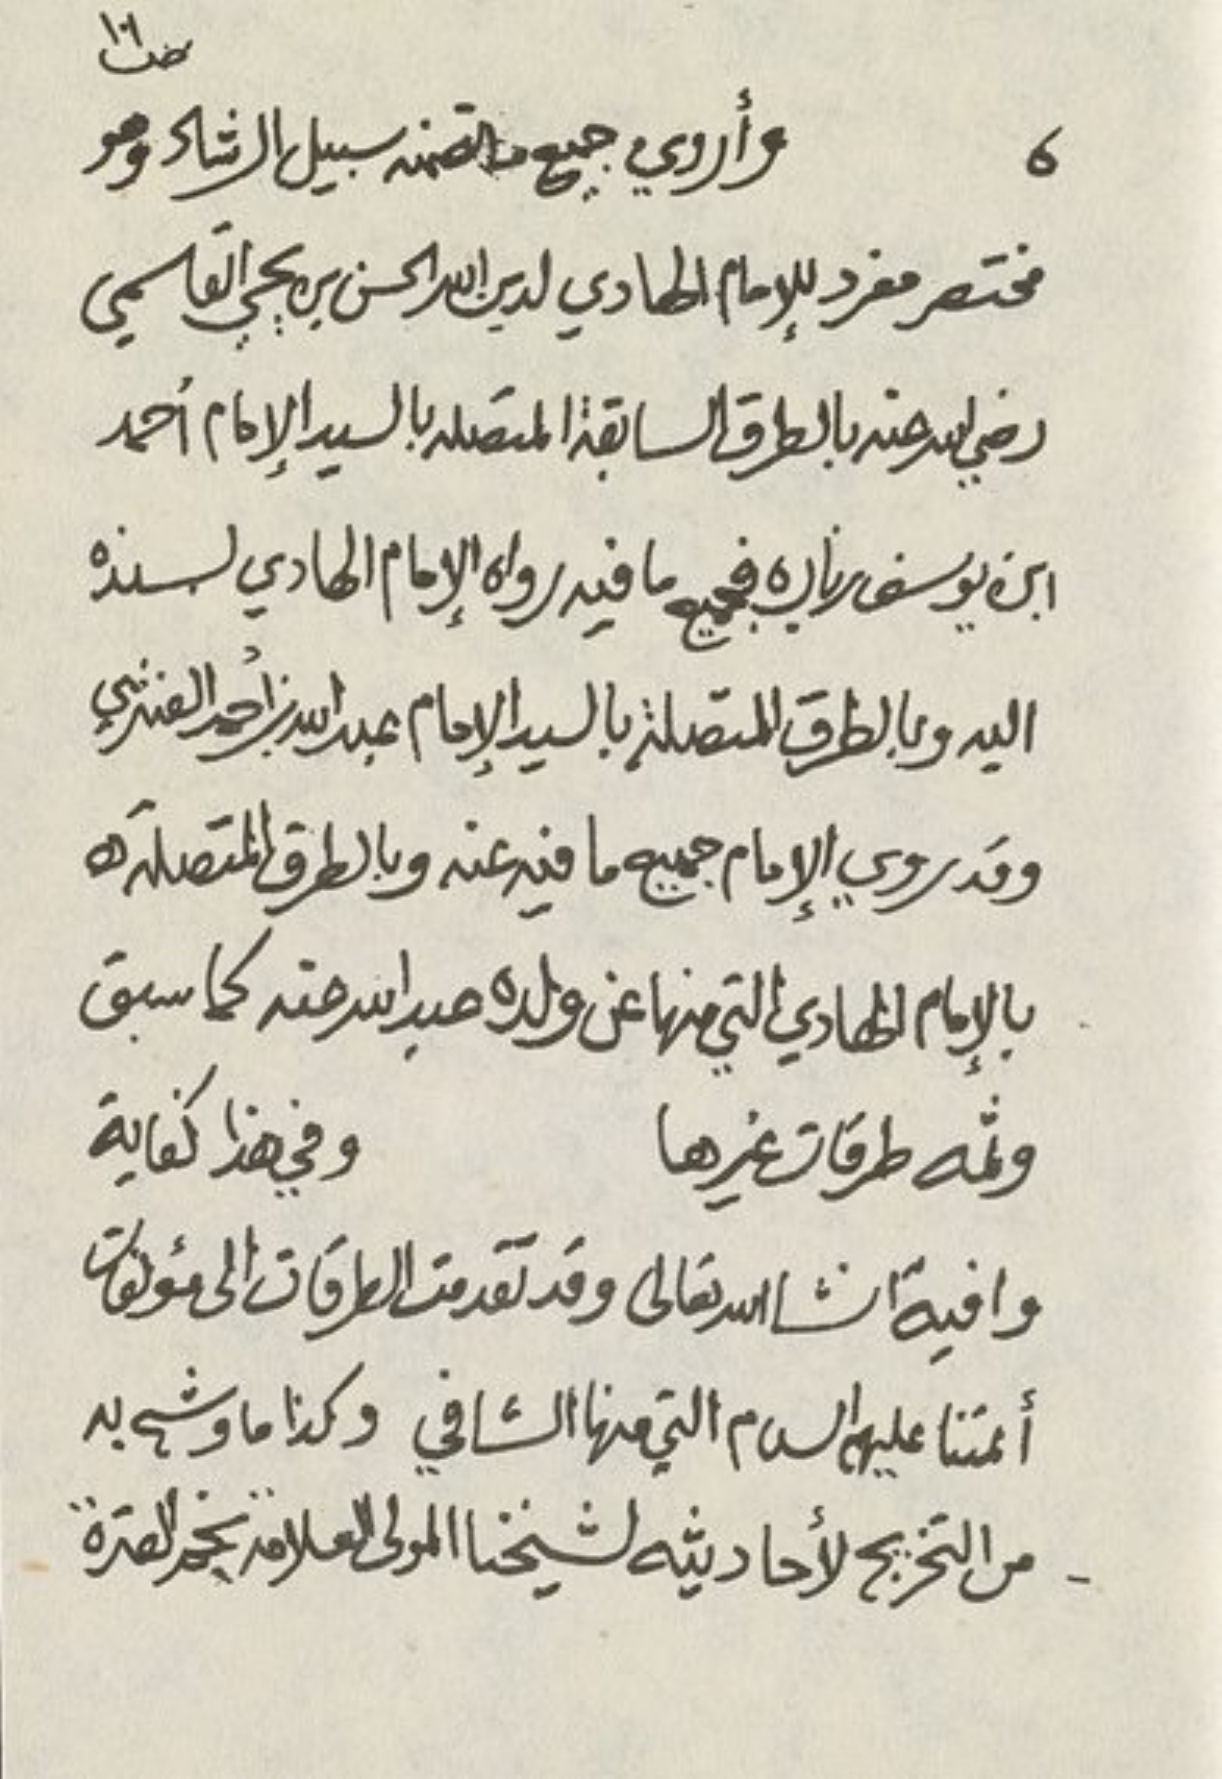 ١٠٦
وأروي جميع ما تضمنه سبيل الرشاد وهو
مختصر مفرد للإمام الهادي لدين الله الحسن بن يحيى القاسمي
رضي الله عنه بالطرق السابقة المتصله بالسيد الإمام أحمد
ابن يوسف زباره فجميع ما فيه رواه الإمام الهادي بسنده
اليه وبالطرق المتصلة بالسيد الإمام عبدالله بن أحمد العنثري
وقد روى الإمام جميع ما فيه عنه وبالطرق المتصلة
بالإمام الهادي التي منها عن ولده عبدالله عنه كما سبق
وثمه طرقات غيرها وفي هذا كفاية
وافية انشاالله تعالى وقد تقدمت الطرقات الى مؤلفات
أئمتنا عليهم السلام التي منها الشافي وكذا ما وشح به
من التخريج لأحاديثه لشيخنا المولى العلامة نجم العترة